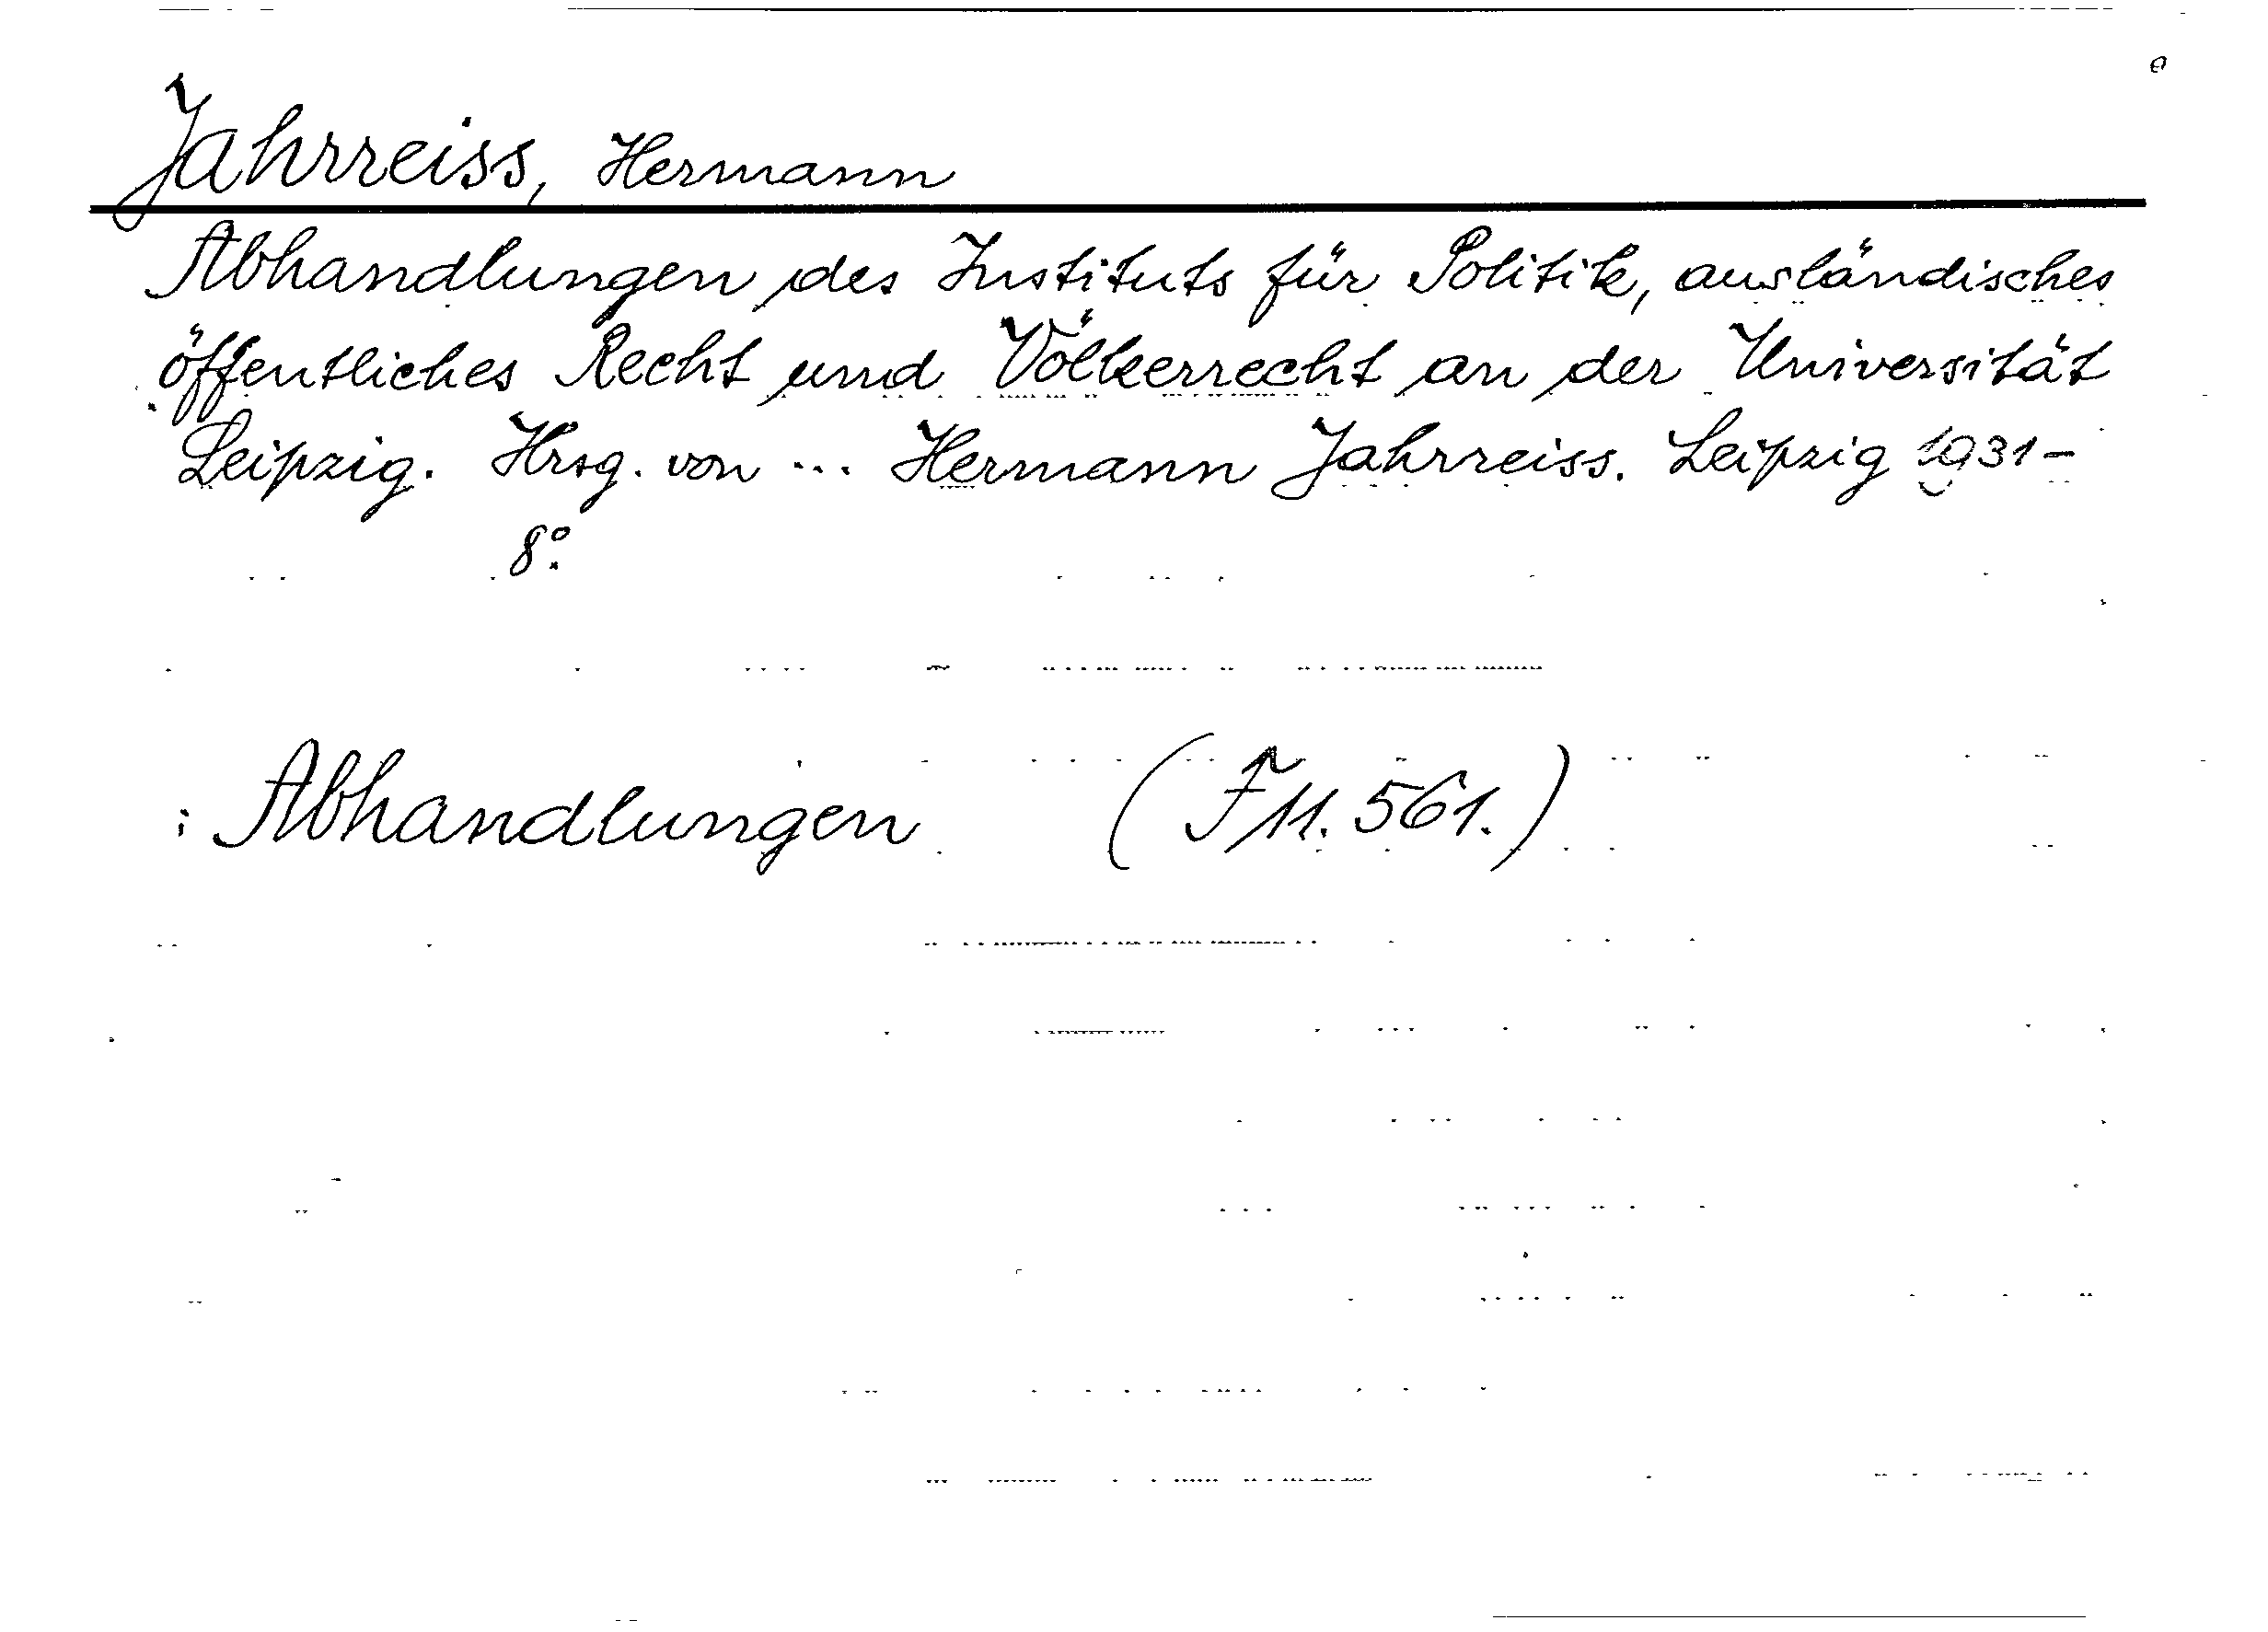 Jahrreiss, Hermann
Abhandlungen des Instituts für Politik, ausländisches
öffentliches Recht und Völkerrecht an der Universität
Leipzig. Hrsg. von ... Hermann Jahrreiss. Leipzig 1931-
8°.
: Abhandlungen (F11.561.)